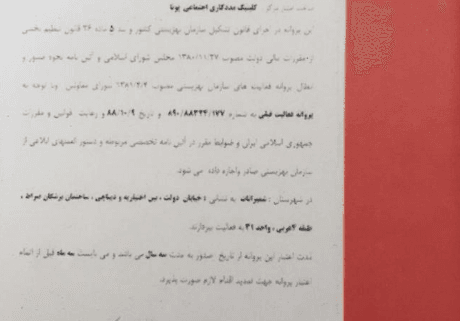 مدت اعتبار مرکز: کلینیک مددکاری اجتماعی پونا
این پروانه در اجرای قانون تشکیل سازمان بهزیستی کشور و بند ۵ ماده ۲۶ قانون تنظیم بخشی
ازمقررات مالی دولت مصوب ۱۳۸۰/۱۱/۲۷ مجلس شورای اسلامی و آئین نامه نحوه صدور و
ابطال پروانه فعالیت های سازمان بهزیستی مصوب ۱۳۸۱/۲/۲ شورای معاونین وبا توجه به
پروانه فعالیت قبلی به شماره ۸۹۰/۸۸۳۳۴/۱۷۷ و تاریخ ۸۸/۱۰/۹ و رعایت قوانین و مقررات
جمهوری اسلامی ایران و ضوابط مقرر در آئین نامه تخصصی مربوطه و دستور العملهای ابلاغی از
سازمان بهزیستی صادر واجازه داده می شود.
در شهرستان : شمیرانات به نشانی : خیابان دولت ، بین اختیاریه و دیباجی ، ساختمان پزشکان صراط ،
طبقه ۴غربی ، واحد ۳۱ به فعالیت بپردازند.
مدت اعتبار این پروانه از تاریخ صدور به مدت سه سال می باشد و می بایست سه ماه قبل از اتمام
اعتبار پروانه جهت تمدید اقدام لازم صورت پذیرد.